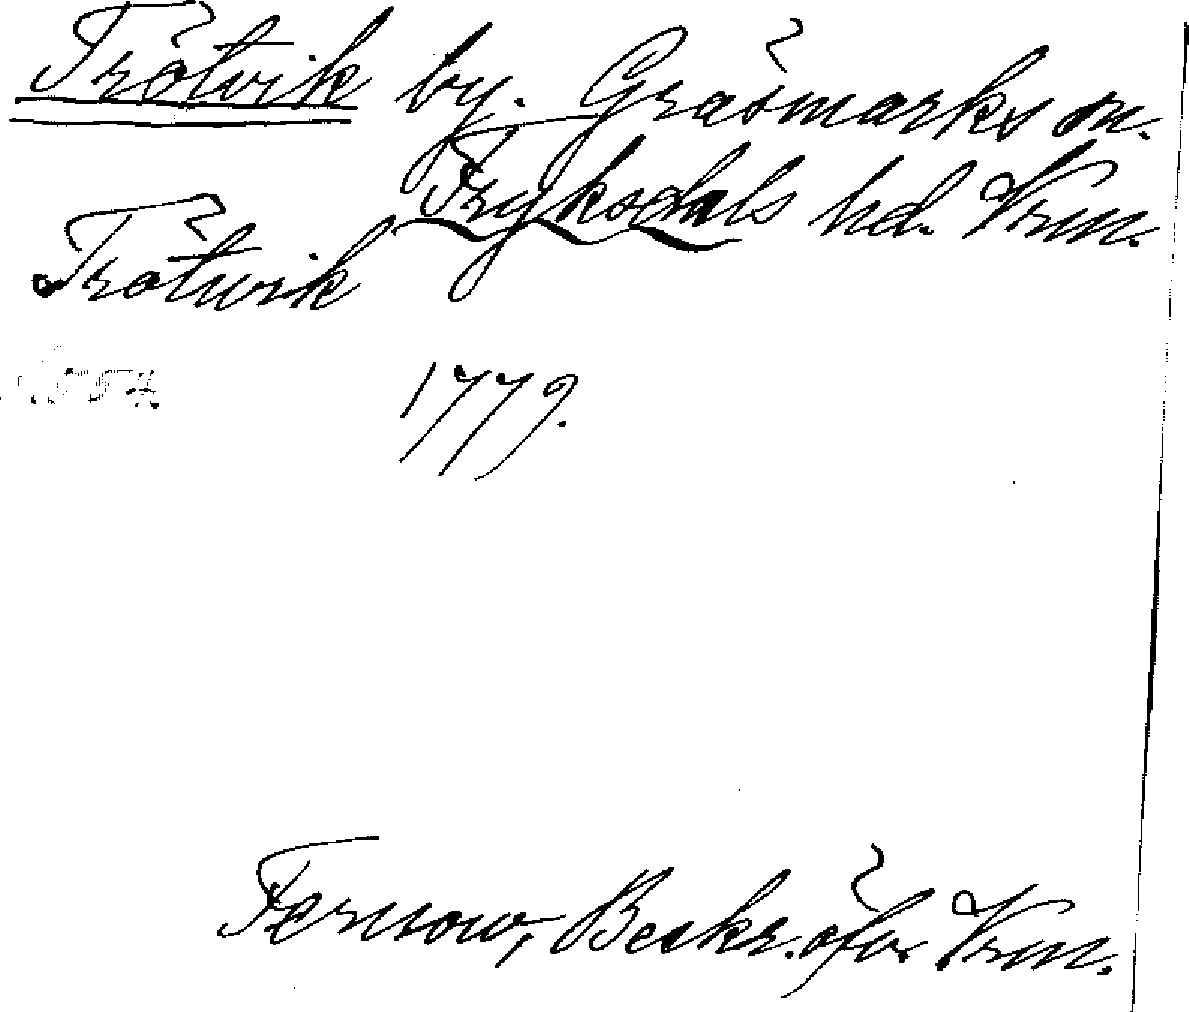 Trötvik by. Gräsmarks sn.
Fryksdals hd. Vrm.
Trötwik
1779.
Fernow, Beskr. öfver Vrm.